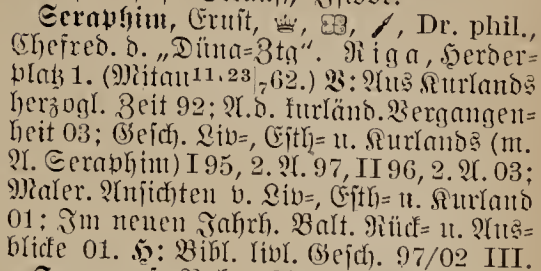 Seraphim, Ernst, Dr. phil.,
Chefred. d. „Düna=Ztg". Riga, Herder=
platz 1. (Mitau 11.23|7 62.) V: Aus Kurlands
herzogl. Zeit 92; A. d. kurländ. Vergangen=
heit 03; Gesch. Liv=, Esth= u. Kurlands (m.
A. Seraphim) I 95, 2. A. 97, II 96, 2. A. 03;
Maler. Ansichten v. Liv=, Esth= u. Kurland
01; Im neuen Jahrh. Balt. Rück= u. Aus=
blicke 01. H: Bibl. livl. Gesch. 97/02 III.